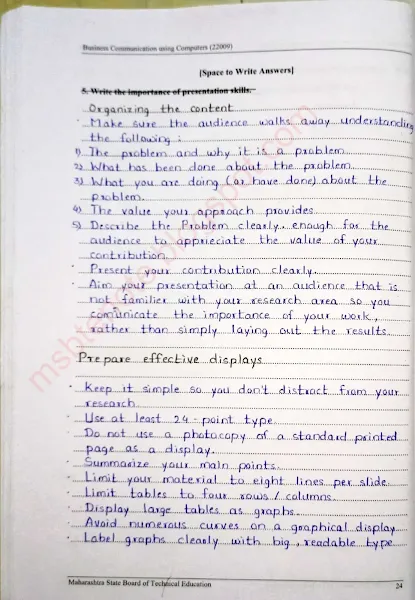 Business Communication using Computers (22009)
[Space to Write Answers]
5. Write the importance of presentation skills.
Organizing the content
· Make sure the audience walks away understanding
the following :
1) The problem and why it is a problem
2) What has been done about the problem.
3) What you are doing (or have done) about the
problem.
4) The value your approach provides
5) Describe the Problem clearly, enough for the
audience to appreciate the value of your
contribution.
· Present your contribution clearly.
· Aim your presentation at an audience that is
not familier with your research area so you
comunicate the importance of your work,
rather than simply laying out the results.
Prepare effective displays
· Keep it simple so you don't distract from your
research.
· Use at least 24 - point type.
· Do not use a photocopy of a standard printed
page as a display.
· Summarize your main points.
· Limit your material to eight lines per slide.
· Limit tables to four rows / columns.
· Display large tables as graphs.
· Avoid numerous curves on a graphical display
· Label graphs clearly with big, readable type
Maharashtra State Board of Technical Education
24